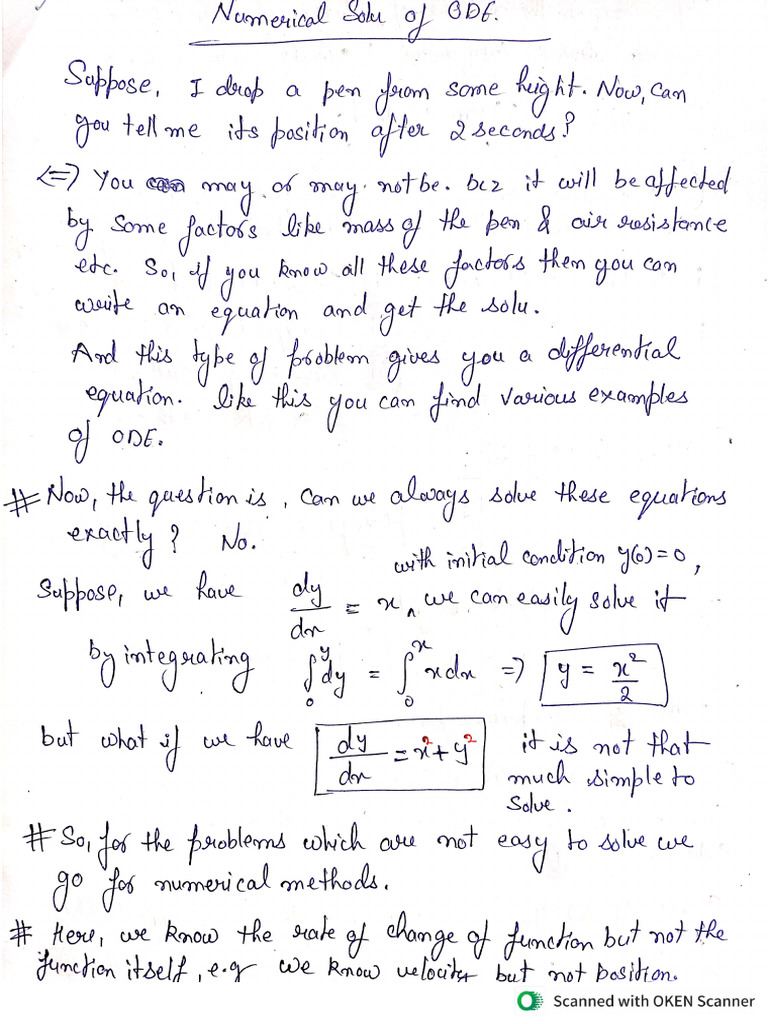 Numerical Solu of ODE.
Suppose, I drop a pen from some height. Now, can
you tell me its position after 2 seconds?
<=> You may or may not be. bcz it will be affected
by some factors like mass of the pen & air resistance
etc. So, if you know all these factors then you can
write an equation and get the solu.
And this type of problem gives you a differential
equation. like this you can find various examples
of ODE.
# Now, the question is, can we always solve these equations
exactly? No.
with initial condition y(0)=0,
Suppose, we have dy/dx = x, we can easily solve it
by integrating ∫₀^y dy = ∫₀^x x dx => y = x²/2
but what if we have dy/dx = x²+y² it is not that
much simple to
solve.
# So, for the problems which are not easy to solve we
go for numerical methods.
# Here, we know the rate of change of function but not the
function itself, e.g we know velocity but not position.
Scanned with OKEN Scanner